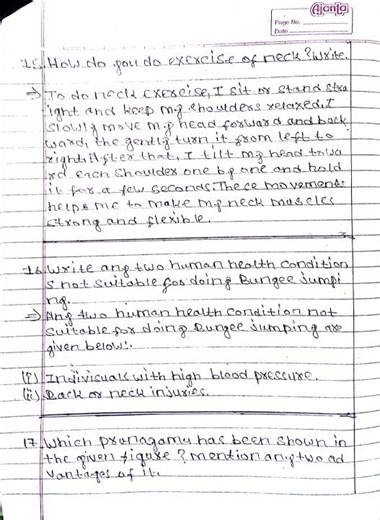 Ajanta
Page No.
Date
15. How do you do exercise of neck? Write.
⇒ To do neck exercise, I sit or stand stra
ight and keep my shoulders relaxed. I
slowly move my head forward and back
ward, the gently turn it from left to
right. After that, I tilt my head towa
rd each shoulder one by one and hold
it for a few seconds. These movements
helps me to make my neck muscles
strong and flexible.
16. Write any two human health condition
s not suitable for doing Bungee jumpi
ng.
⇒ Any two human health condition not
suitable for doing Bungee jumping are
given below:-
(i) Indivisuals with high blood pressure.
(ii) Back or neck injuries.
17. Which pranagama has been shown in
the given figure? mention any two ad
vantages of it.